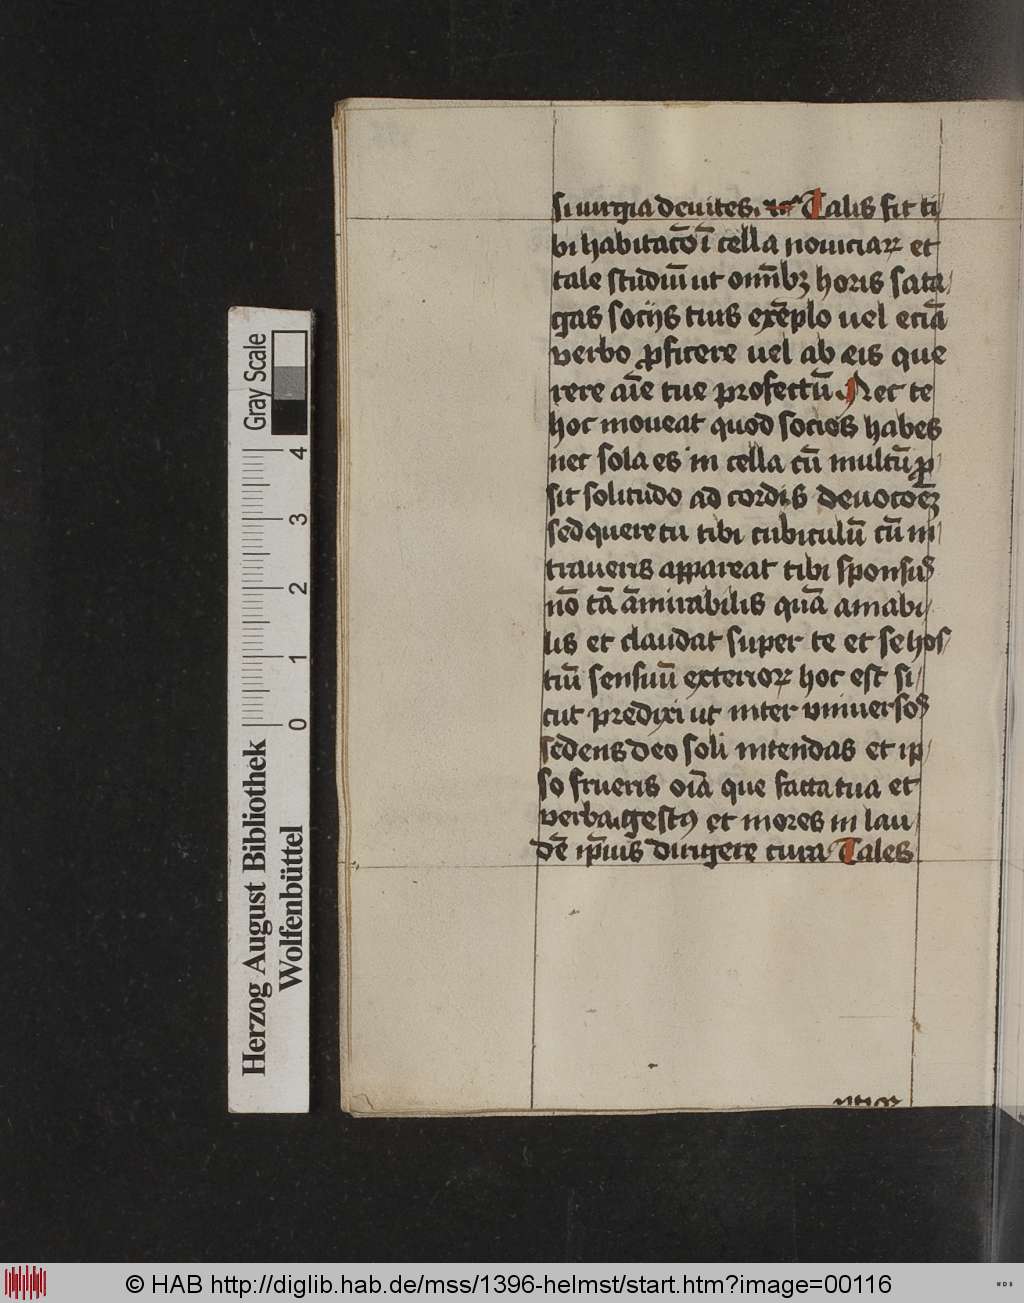 si iurgia deuites. Talis sit ti
bi habitac̄o ī cella nouiciaꝝ et
tale studiū ut om̄ibꝫ horis sata
gas socijs tuis exēplo uel eciā
verbo ꝓficere uel ab eis que
rere aīe tue profectū Nec te
hoc moueat quod socios habes
nec sola es in cella cū multū ꝓ
sit solitudo ad cordis deuoc̄oēꝫ
sed quere tu tibi cubiculū cū in
traueris appareat tibi sponsus
nō tā āmirabilis quā amabi
lis et claudat super te et se hos
tiū sensuū exterioꝝ hoc est si
cut predixi ut inter vniuersos
sedens deo soli intendas et ip
so frueris oīa que facta tua et
verba gestꝰ et mores in lau
dē ip̄ius dirigere cura Tales
Herzog August Bibliothek
Wolfenbüttel
Gray Scale
0 1 2 3 4
© HAB http://diglib.hab.de/mss/1396-helmst/start.htm?image=00116